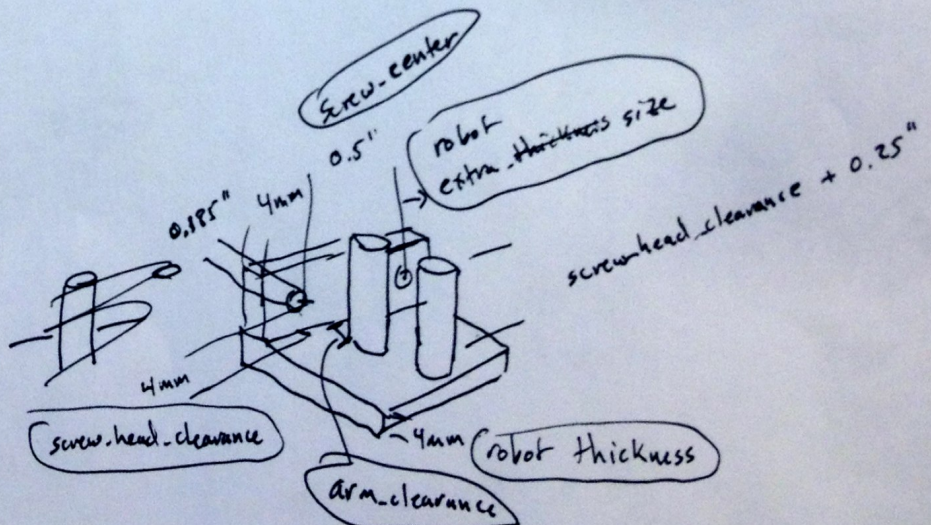 screw_center
0.5"
robot
extra_thickness size
0.185"
4mm
screw_head_clearance + 0.25"
4mm
screw_head_clearance
4mm
robot thickness
arm_clearance